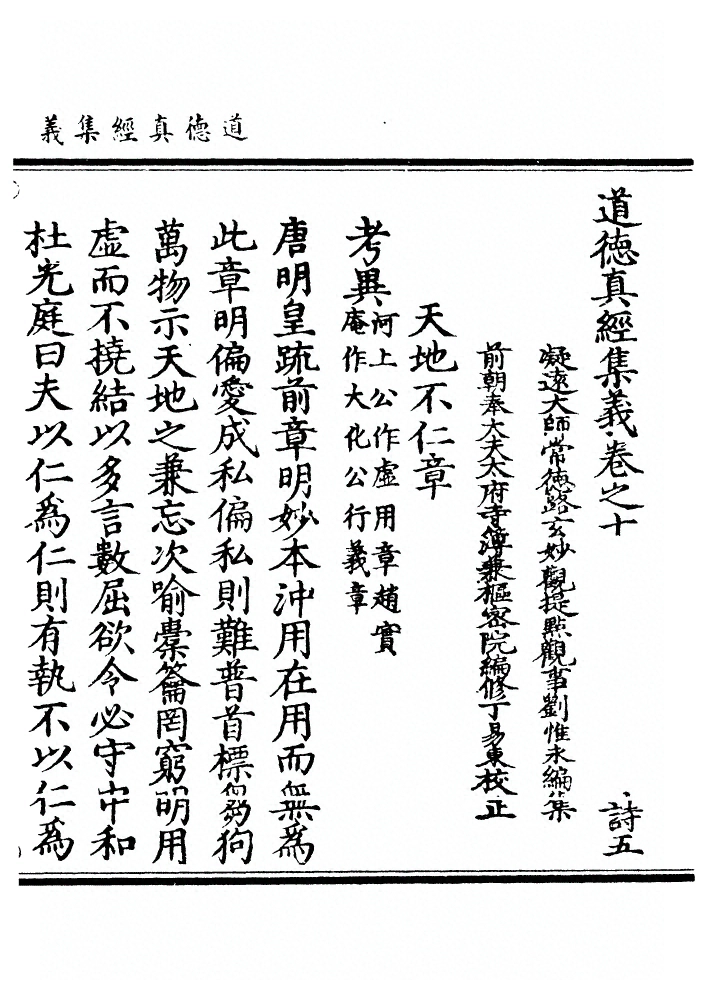 道德真經集義
道德真經集義卷之十 詩五
凝遠大師常德路玄妙觀提點觀事劉惟永編集
前朝奉大夫太府寺簿兼樞密院編修丁易東校正
天地不仁章
考異河上公作虛用章趙實
庵作大化公行義章
唐明皇疏前章明妙本沖用在用而無為
此章明偏愛成私偏私則難普首標芻狗
萬物示天地之兼忘次喻橐籥罔窮明用
虛而不撓結以多言數屈欲令必守中和
杜光庭曰夫以仁為仁則有執不以仁為